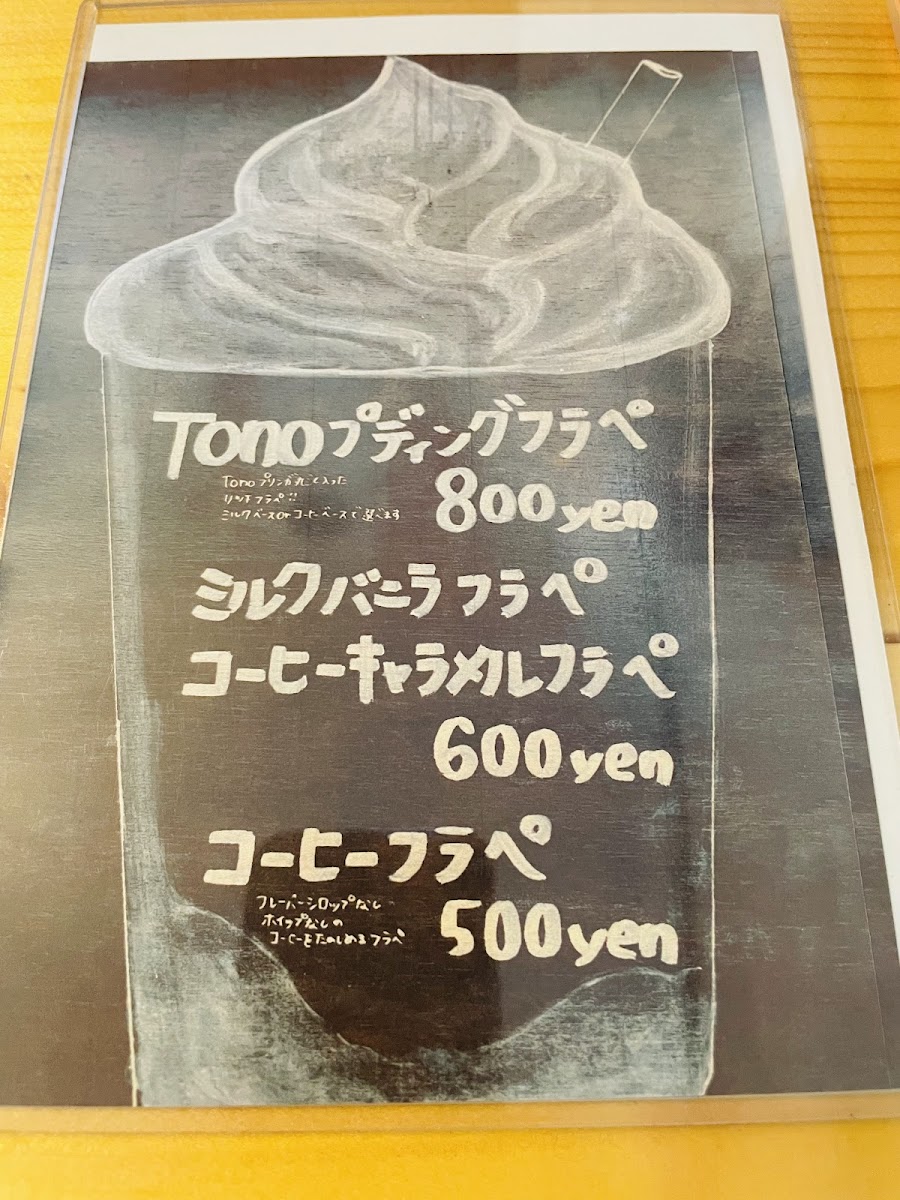 Tonoプディングフラペ
Tonoプリンが丸ごと入った
リッチフラペ!!
ミルクベースorコーヒーベースで選べます
800yen
ミルクバニラフラペ
コーヒーキャラメルフラペ
600yen
コーヒーフラペ
フレーバーシロップなし
ホイップなしの
コーヒーをたのしめるフラペ
500yen